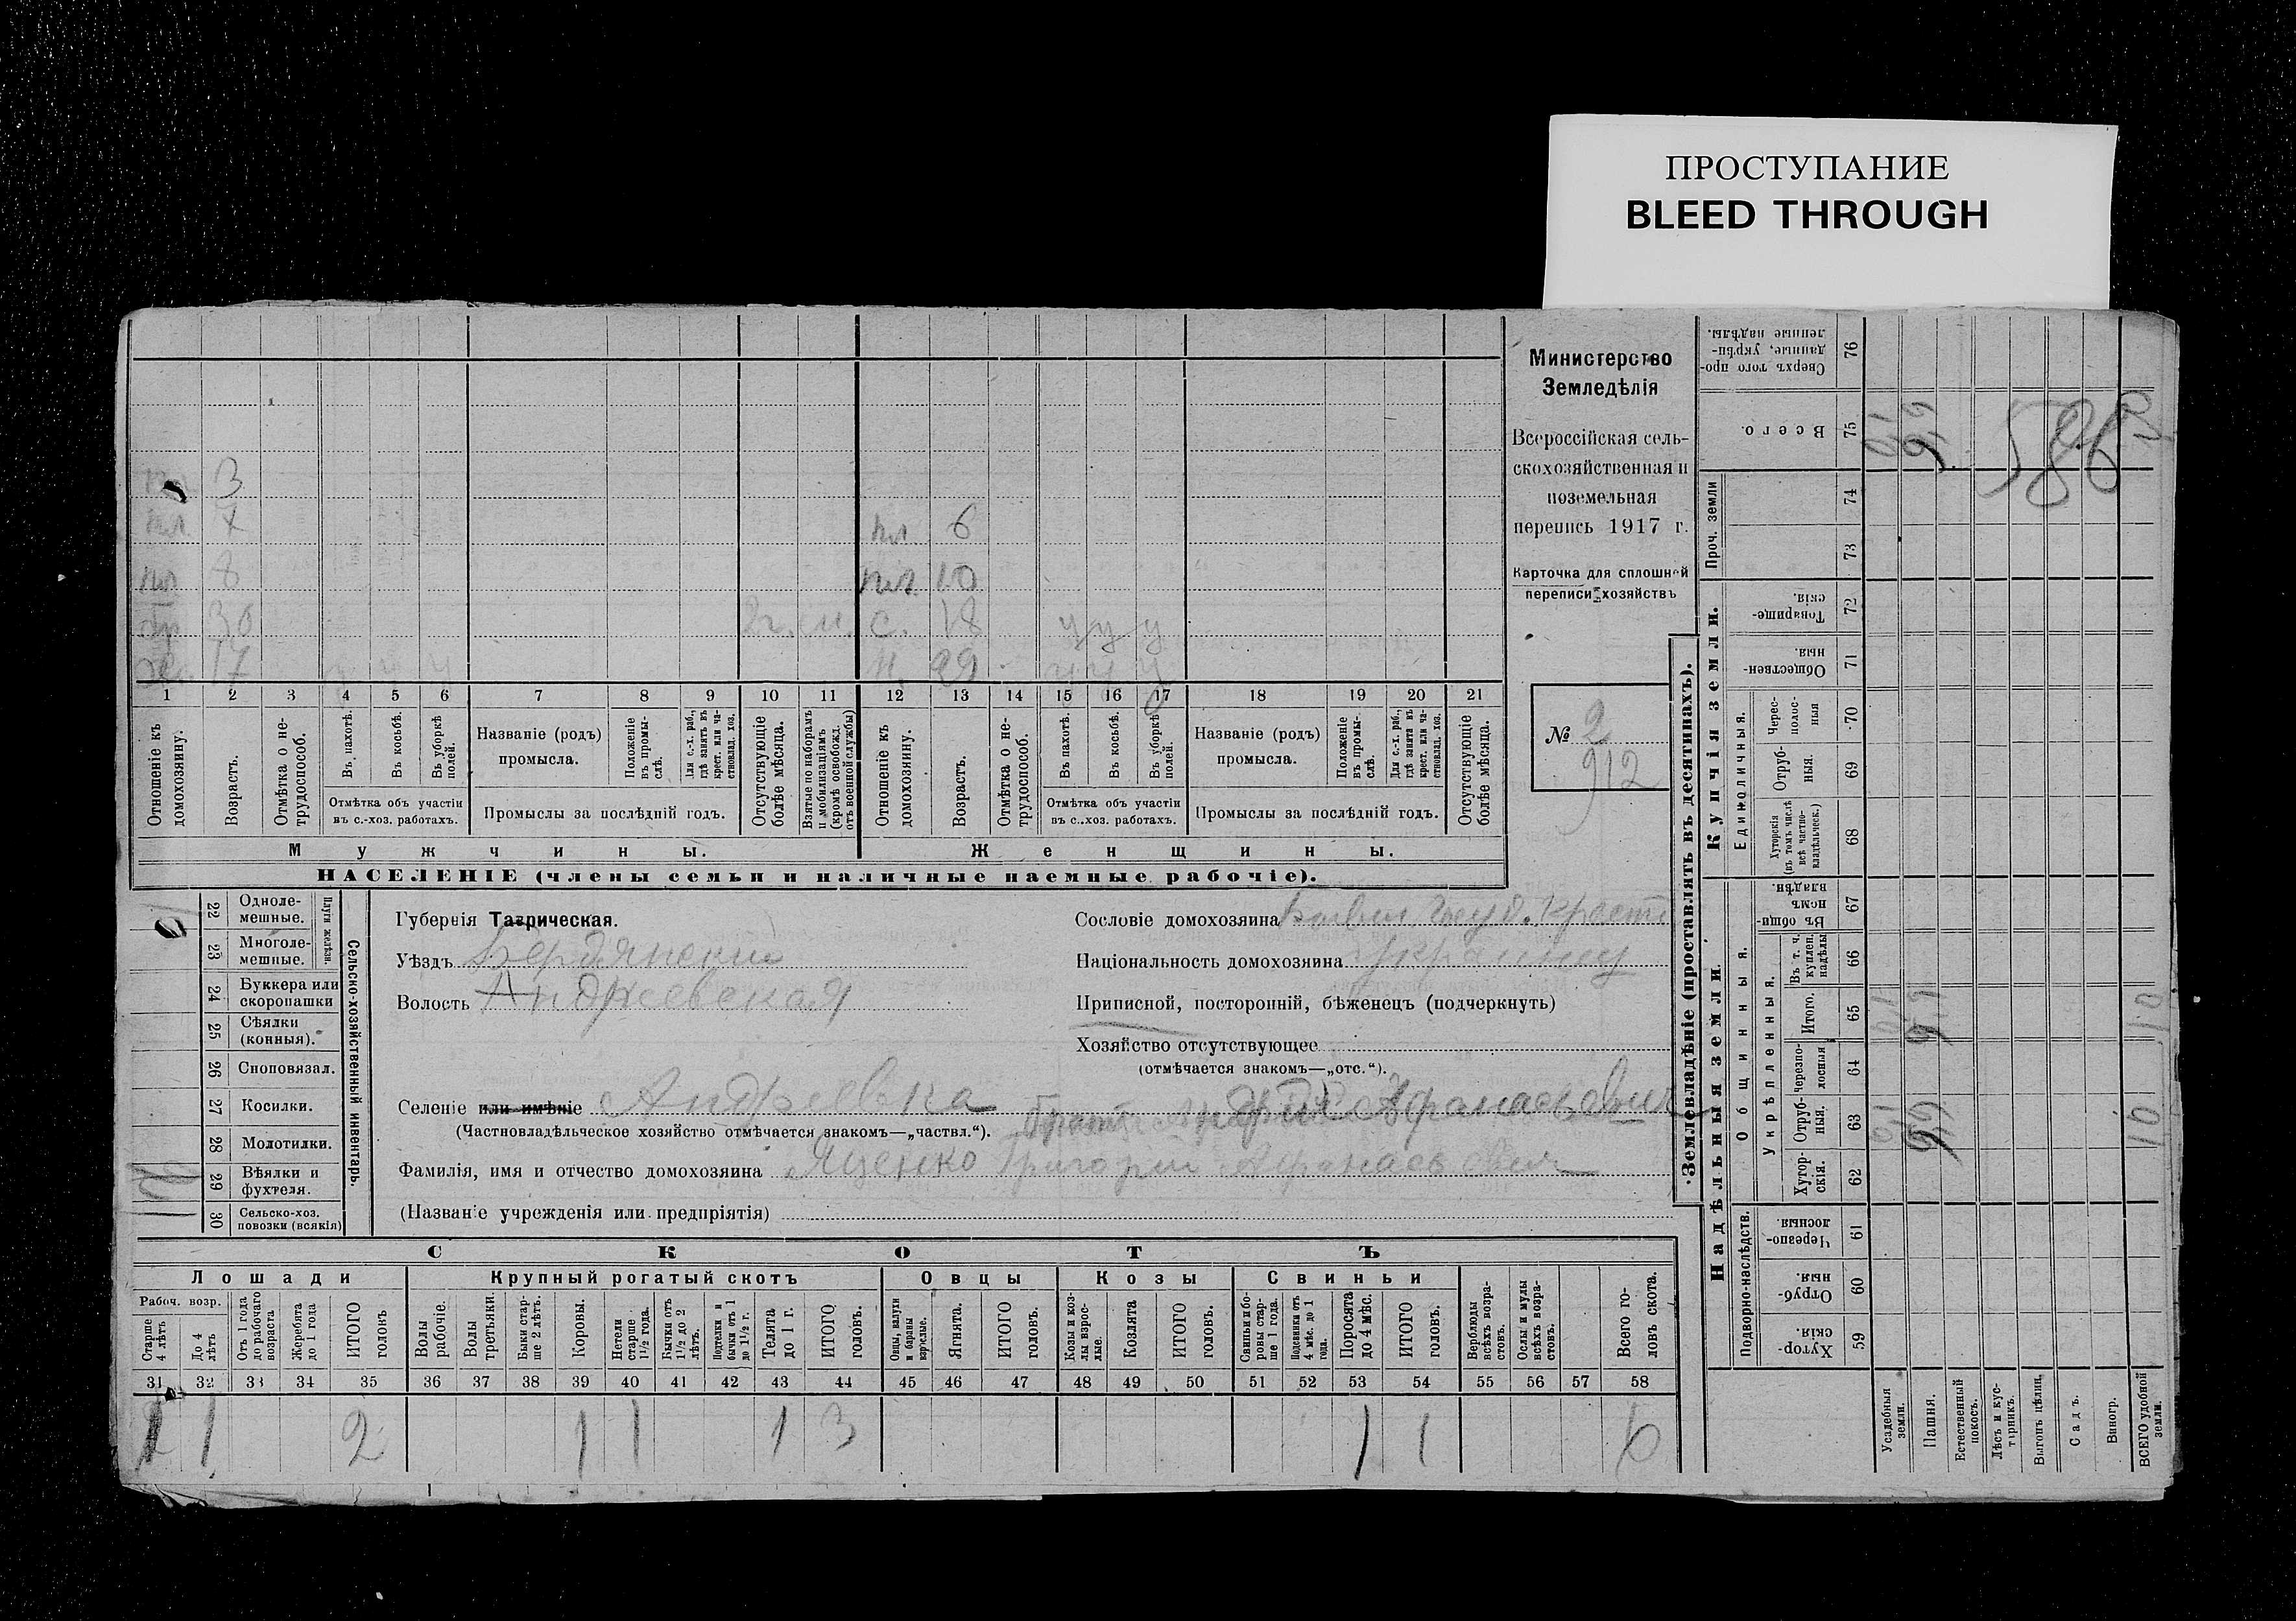 ПРОСТУПАНИЕ
BLEED THROUGH
Министерство
Земледѣлія
Всероссійская сель-
скохозяйственная и
поземельная
перепись 1917 г.
Карточка для сплошной
переписи хозяйствъ
№ 2
912
3
пл 6
пл 8 пл 10
30 с. 18 у у у
17 29
1 2 3 4 5 6 7 8 9 10 11 12 13 14 15 16 17 18 19 20 21
Отношеніе къ домохозяину.
Возрастъ.
Отмѣтка о не-трудоспособ.
Въ пахотѣ.
Въ косьбѣ.
Въ уборкѣ полей.
Отмѣтка объ участіи въ с.-хоз. работахъ.
Названіе (родъ) промысла.
Положеніе въ промы-слѣ.
Для с.-х. раб., гдѣ занятъ въ крест. или ча-стновлад. хоз.
Промыслы за послѣдній годъ.
Отсутствующіе болѣе мѣсяца.
Взятые по наборамъ и мобилизаціямъ (кромѣ освобожд. отъ военной службы)
Отношеніе къ домохозяину.
Возрастъ.
Отмѣтка о не-трудоспособ.
Въ пахотѣ.
Въ косьбѣ.
Въ уборкѣ полей.
Отмѣтка объ участіи въ с.-хоз. работахъ.
Названіе (родъ) промысла.
Положеніе въ промы-слѣ.
Для с.-х. раб., гдѣ занята въ крест. или ча-стновлад. хоз.
Промыслы за послѣдній годъ.
Отсутствующіе болѣе мѣсяца.
Мужчины. Женщины.
НАСЕЛЕНІЕ (члены семьи и наличные наемные рабочіе).
22 Одноле-мешные.
23 Многоле-мешные.
Плуги желѣзн.
24 Буккера или скоропашки
25 Сѣялки (конныя).
26 Сноповязал.
27 Косилки.
28 Молотилки.
29 Вѣялки и фухтеля.
30 Сельско-хоз. повозки (всякія)
Сельско-хозяйственный инвентарь.
Губернія Таврическая.
Уѣздъ Бердянскій
Волость Андреевская
Сословіе домохозяина
Національность домохозяина украинец
Приписной, посторонній, бѣженецъ (подчеркнуть)
Хозяйство отсутствующее
(отмѣчается знакомъ—„отс.“).
Селеніе или имѣніе Андреевка
Афанасьевич
(Частновладѣльческое хозяйство отмѣчается знакомъ—„частвл.“).
Фамилія, имя и отчество домохозяина Яценко Григорий Афанасьевич
(Названіе учрежденія или предпріятія)
СКОТЪ
Лошади Крупный рогатый скотъ Овцы Козы Свиньи
Рабоч. возр.
Старше 4 лѣтъ
До 4 лѣтъ
Отъ 1 года до рабочаго возраста
Жеребята до 1 года
ИТОГО головъ
Волы рабочіе.
Волы третьяки.
Быки стар-ше 2 лѣтъ.
Коровы.
Нетели старше 1½ года.
Бычки отъ 1½ до 2 лѣтъ.
Подтелки и бычки отъ 1 до 1½ г.
Телята до 1 г.
ИТОГО головъ.
Овцы, валухи и бараны взрослые.
Ягнята.
ИТОГО головъ.
Козы и коз-лы взрос-лые.
Козлята
ИТОГО головъ.
Свиньи и бо-ровы стар-ше 1 года.
Подсвинки отъ 4 мѣс. до 1 года.
Поросята до 4 мѣс.
ИТОГО головъ.
Верблюды всѣхъ возра-стовъ.
Ослы и мулы всѣхъ возра-стовъ.
Всего го-ловъ скота.
31 32 33 34 35 36 37 38 39 40 41 42 43 44 45 46 47 48 49 50 51 52 53 54 55 56 57 58
1 2 1 1 1 3 1 1 6
Землевладѣніе (проставлять въ десятинахъ).
Надѣльныя земли. Купчія земли.
Подворно-наслѣдств.
Общинныя.
Укрѣпленныя.
Единоличныя.
Проч. земли
59 Хутор-скія.
60 Отруб-ныя.
61 Черезпо-лосныя
62 Хутор-скія.
63 Отруб-ныя.
64 Черезпо-лосныя
65 Итого.
66 Въ т. ч. куплен. надѣлы
67 Въ общи-номъ владѣн.
68 Хуторскія (въ томъ числѣ всѣ частно-владѣльческ.)
69 Отруб-ныя.
70 Черес-полос-ныя
71 Обществен-ныя.
72 Товарище-скія.
73
74
75 Всего.
76 Сверхъ того про-данные, укрѣп-ленные надѣлы.
586
10
10
Усадебныя земли.
Пашня.
Естественный покосъ.
Лѣсъ и кус-тарникъ.
Выгонъ цѣлин.
Садъ.
Виногр.
ВСЕГО удобной земли.